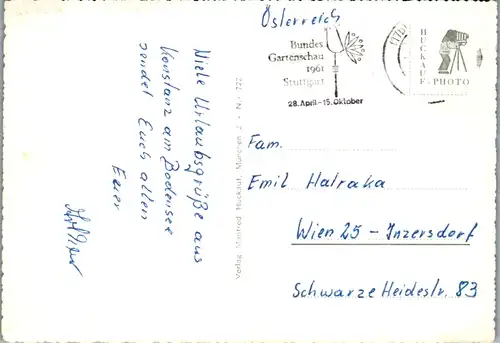 Österreich
Bundes
Gartenschau
1961
Stuttgart
28. April - 15. Oktober
HUCKAUF - PHOTO
Viele Urlaubsgrüße aus
Konstanz am Bodensee
sendet Euch allen
Euer
Verlag Manfred Huckauf, München 2 - Nr. 722
Fam.
Emil Halraka
Wien 25 - Inzersdorf
Schwarze Heidestr. 83